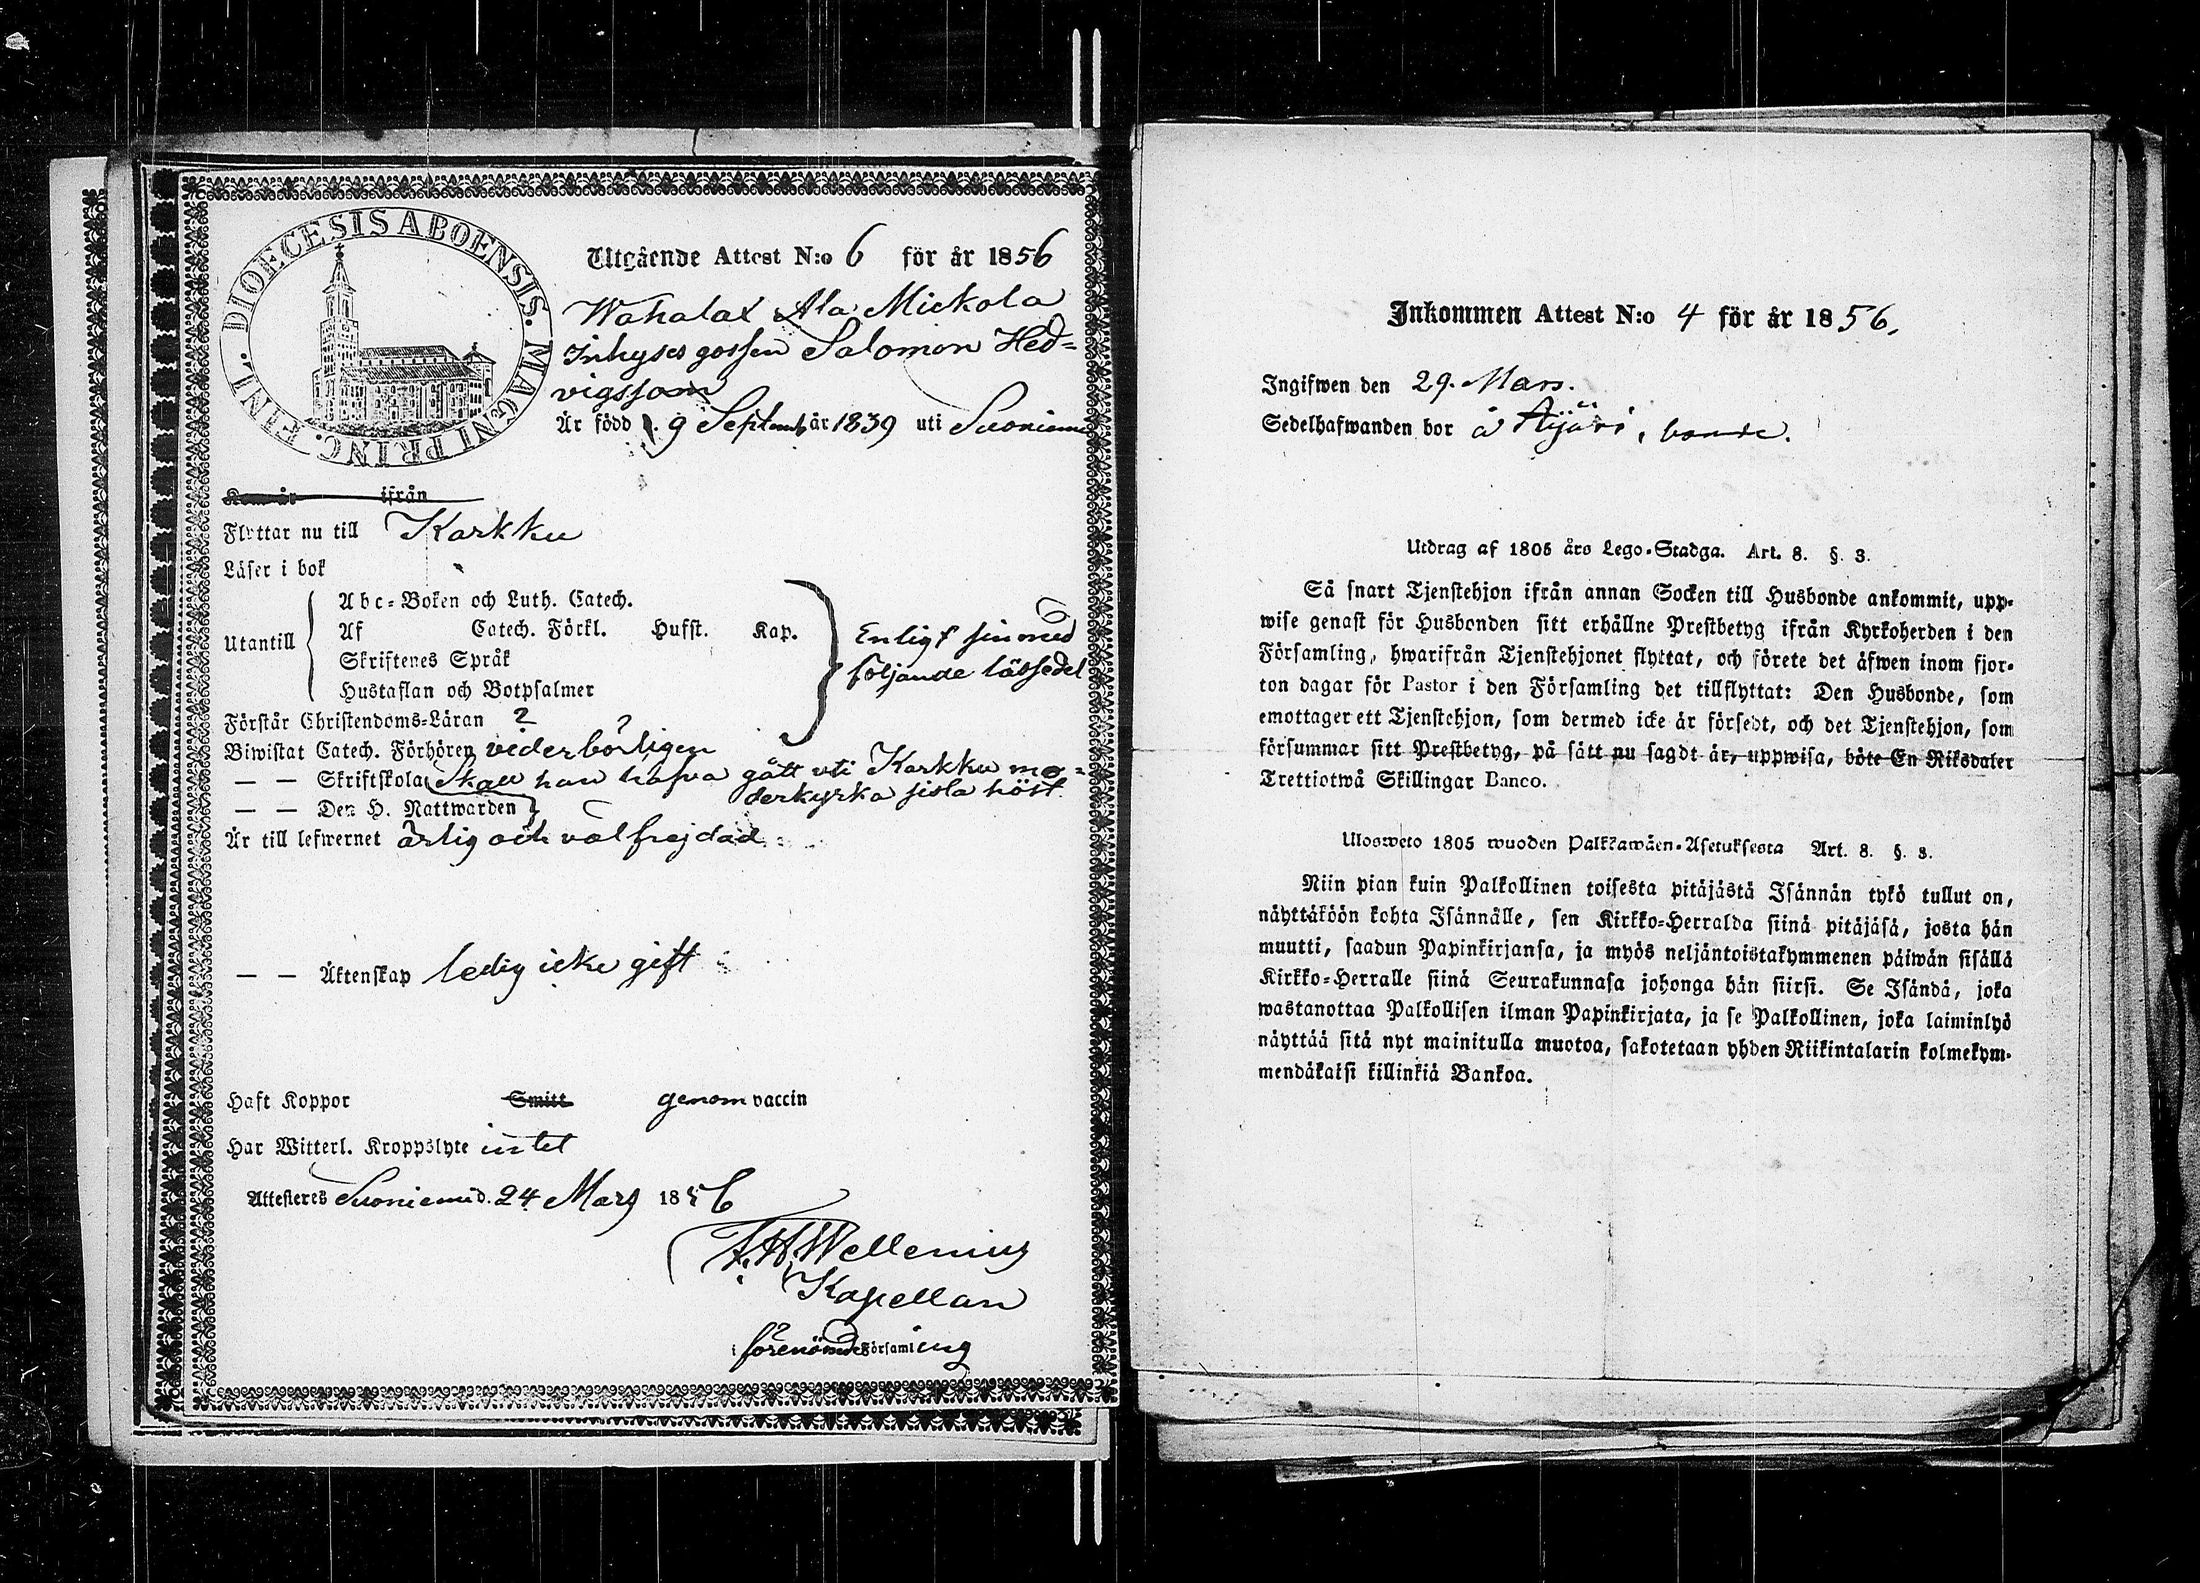 DIOECESIS ABOENSIS. MAGNI PRINC. FINL.
Utgående Attest N:o 6 för år 1856
Wahalax Ala Mickola
Inhyses gossen Salomon Hed=
vigsson
Är född d. 9 Septemb år 1839 uti Suoniemi
Kom år ifrån
Flyttar nu till Karkku
Läser i bok
Utantill
Abc=Boken och Luth. Catech.
Af Catech. Förkl. Husft. Kap.
Skriftenes Språk
Hustaflan och Botpsalmer
Enligt sin med
följande lässedel
Förstår Christendoms=Läran ?
Biwistat Catech. Förhören vederbörligen
— — Skriftskola Skall han hafva gått uti Karkku mo=
derkyrka sista höst
— — Den H. Nattwarden
Är till lefwernet ärlig och välfrejdad
— — Äktenskap ledig icke gift
Haft Koppor Smitt genom vaccin
Har Witterl. Kroppslyte intet
Attesteres Suoniemi d. 24 Mars 1856
F. H. Wellenius
Kapellan
i förenämde Församling
Inkommen Attest N:o 4 för år 1856.
Ingifwen den 29. Mars.
Sedelhafwanden bor å Äijäri, bonde.
Utdrag af 1805 års Lego-Stadga. Art. 8. §. 3.
Så snart Tjenstehjon ifrån annan Socken till Husbonde ankommit, upp-
wise genast för Husbonden sitt erhållne Prestbetyg ifrån Kyrkoherden i den
Församling, hwarifrån Tjenstehjonet flyttat, och förete det äfwen inom fjor-
ton dagar för Pastor i den Församling det tillflyttat: Den Husbonde, som
emottager ett Tjenstehjon, som dermed icke är försedt, och det Tjenstehjon, som
försummar sitt Prestbetyg, på sätt nu sagdt är, uppwisa, böte En Riksdaler
Trettiotwå Skillingar Banco.
Ulosweto 1805 wuoden Palkkawäen-Asetuksesta Art. 8. §. 3.
Niin pian kuin Palkollinen toisesta pitäjästä Isännän tykö tullut on,
näyttäköön kohta Isännälle, sen Kirkko=Herralda siinä pitäjäsä, josta hän
muutti, saadun Papinkirjansa, ja myös neljäntoistakymmenen päiwän sisällä
Kirkko=Herralle siinä Seurakunnasa johonga hän siirsi. Se Isändä, joka
wastanottaa Palkollisen ilman Papinkirjata, ja se Palkollinen, joka laiminlyö
näyttää sitä nyt mainitulla muotoa, sakotetaan yhden Riikintalarin kolmekym-
mendäkaksi killinkiä Bankoa.